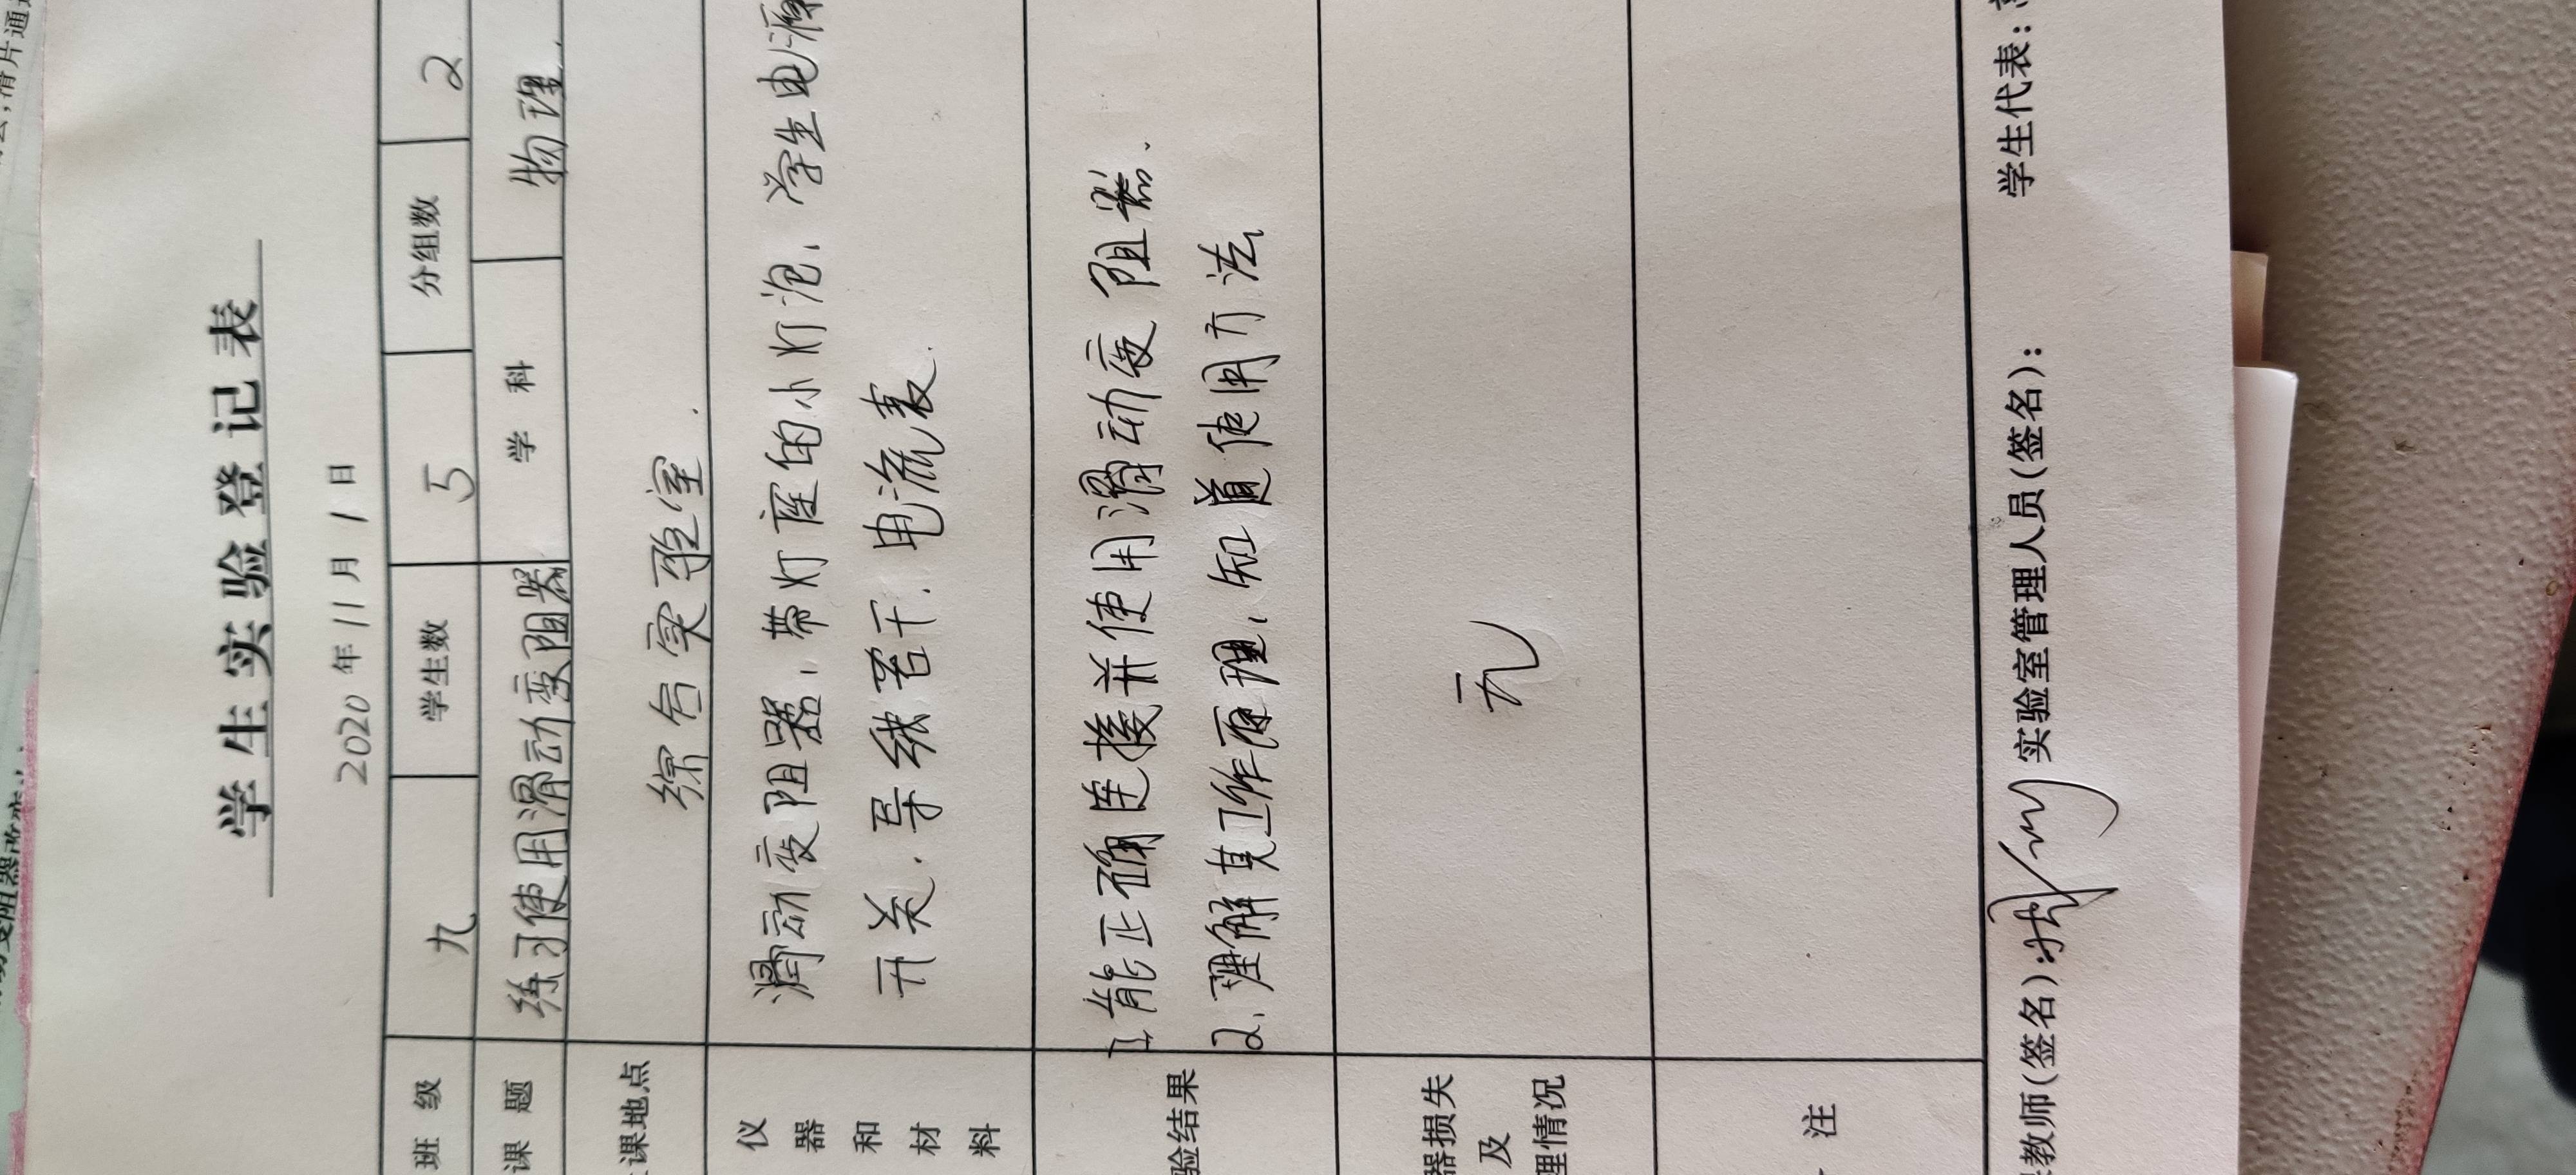 学生实验登记表
2020年11月1日
班级 九 学生数 5 分组数 2
课题 练习使用滑动变阻器 学科 物理
课地点 综合实验室.
仪器和材料 滑动变阻器、带灯座的小灯泡、学生电源
开关、导线若干、电流表.
验结果 1.能正确连接并使用滑动变阻器.
2.理解其工作原理、知道使用方法
器损失及理情况 无
注
教师(签名): 实验室管理人员(签名): 学生代表: